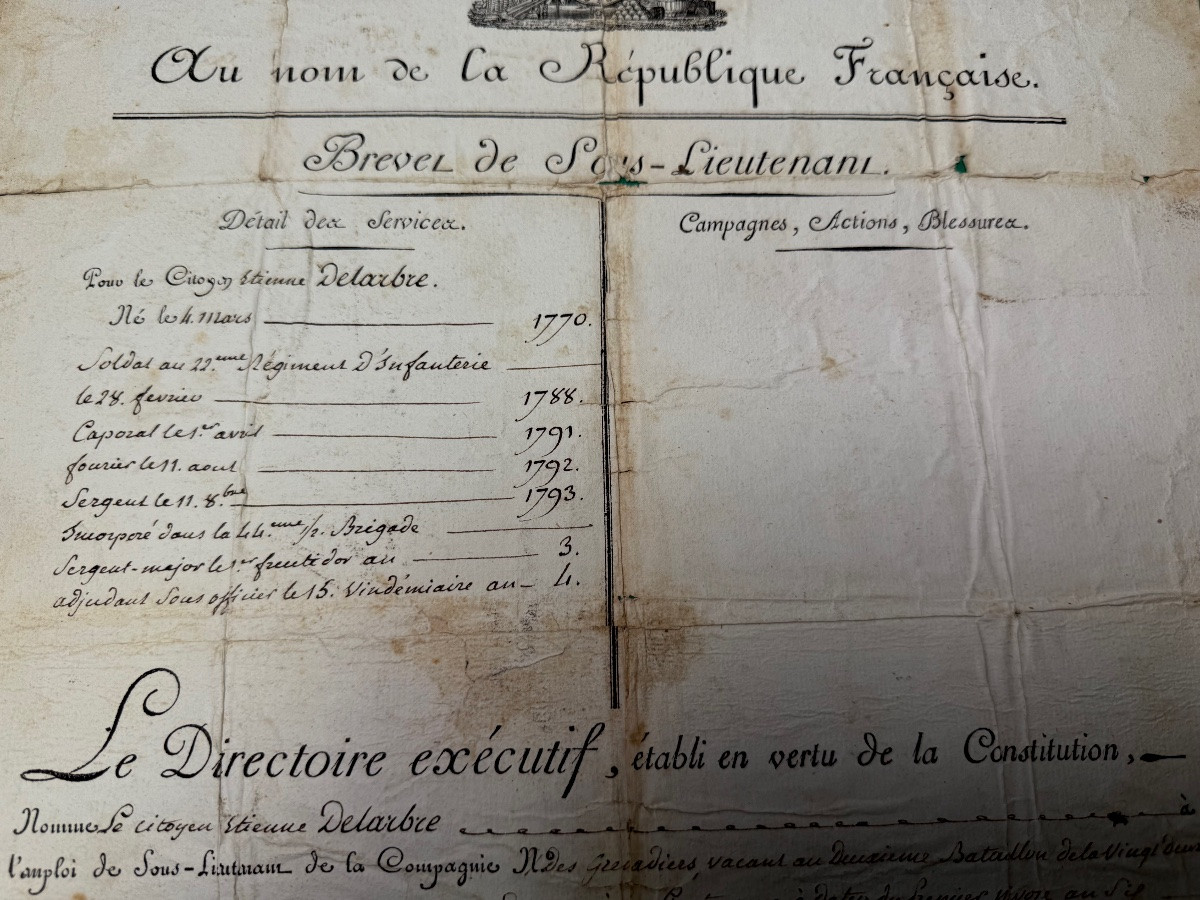 Au nom de la République Française.
Brevet de Sous-Lieutenant.
Détail des Services.
Pour le Citoyen Etienne Delarbre.
Né le 4. mars 1770.
Soldat au 22.eme Régiment D'Infanterie
le 28. fevrier 1788.
Caporal le 1.er avril 1791.
fourier le 11. aout 1792.
Sergent le 11. 8.bre 1793.
Incorporé dans la 44.eme 1/2. Brigade
Sergent-major le 1.er fructidor an 3.
adjudant Sous officier le 15. Vindémiaire an 4.
Campagnes, Actions, Blessures.
Le Directoire exécutif, établi en vertu de la Constitution,
Nomme Le Citoyen Etienne Delarbre à
l'emploi de Sous-Lieutenant de la Compagnie N des Grenadiers, vacant au Deuxième Bataillon de la Vingt
à dater du Premier